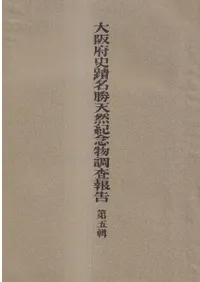 大阪府史蹟名勝天然紀念物調査報告
第五輯